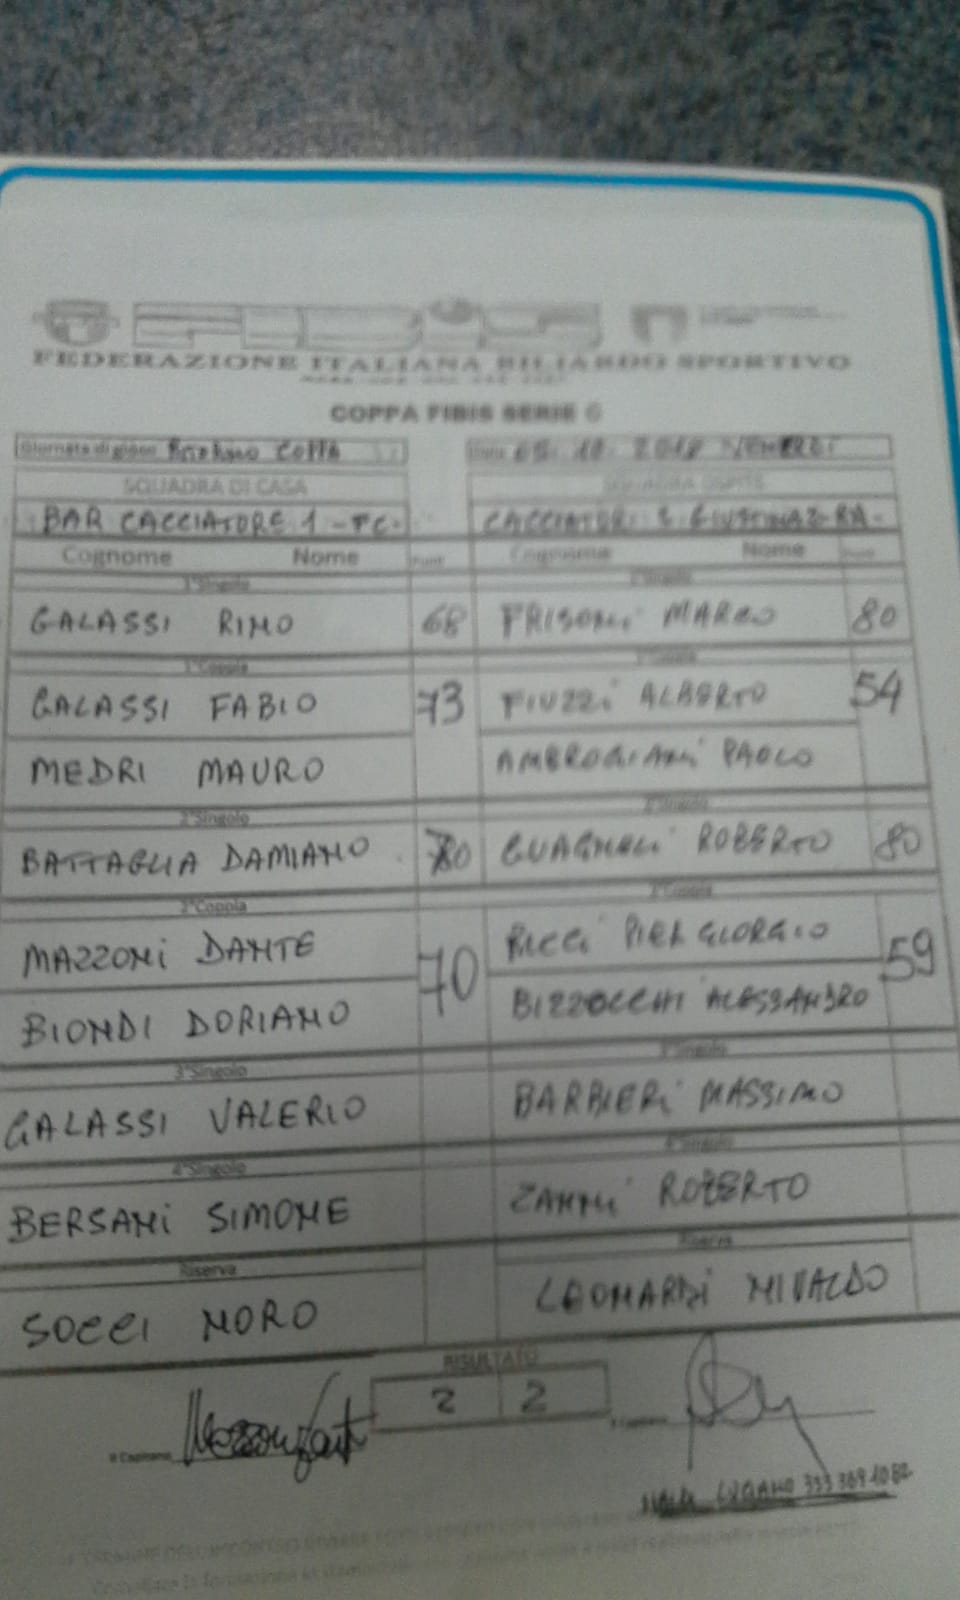 FIBiS
FEDERAZIONE ITALIANA BILIARDO SPORTIVO
COPPA FIBIS SERIE C
Giornata di gioco COPPA
Data 05. 10. 2018 VENERDI
SQUADRA DI CASA SQUADRA OSPITE
BAR CACCIATORE 1 - FC- CACCIATORI S GIUSTINA 2 RN-
Cognome Nome Punti Cognome Nome Punti
1°Singolo 1°Singolo
GALASSI RINO 68 FRISONI MARCO 80
1°Coppia 1°Coppia
GALASSI FABIO 73 FIUZZI ALBERTO 54
MEDRI MAURO AMBROGIANI PAOLO
2°Singolo 2°Singolo
BATTAGLIA DAMIANO GUAGNELI ROBERTO 80
2°Coppia 2°Coppia
MAZZONI DANTE 70 RICCI PIER GIORGIO 59
BIONDI DORIANO BIZZOCCHI ALESSANDRO
3°Singolo 3°Singolo
GALASSI VALERIO BARBIERI MASSIMO
4°Singolo 4°Singolo
BERSANI SIMONE ZANNI ROBERTO
Riserva Riserva
SOCCI MORO LEONARDI NIVALDO
RISULTATO
2 2
Il Capitano Il Capitano